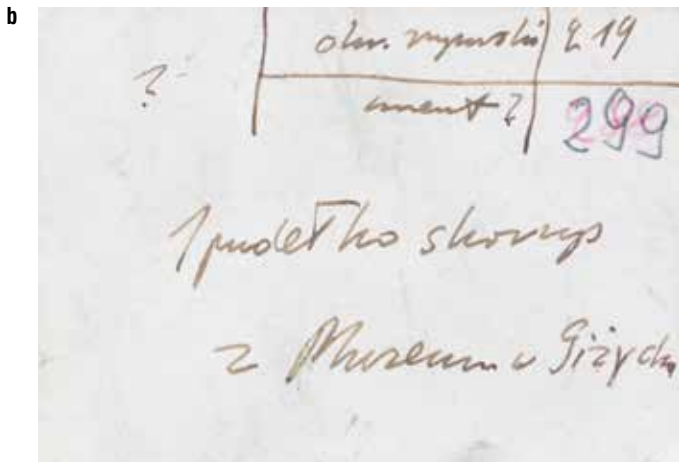 b
okr. rzymski
? cment? 299
1 pudełko skorup
z Muzeum w Giżycku